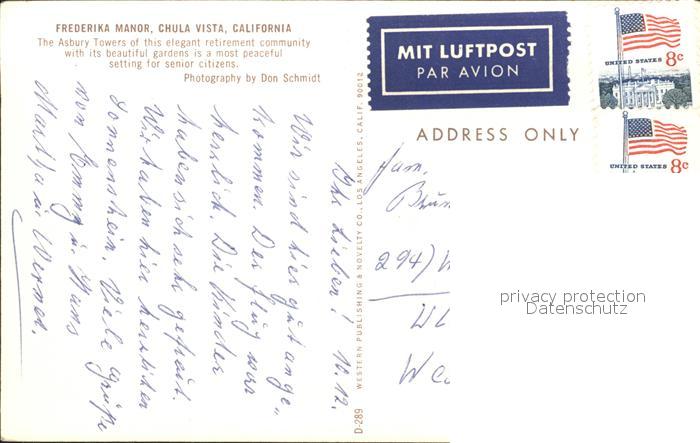 FREDERIKA MANOR, CHULA VISTA, CALIFORNIA
The Asbury Towers of this elegant retirement community
with its beautiful gardens is a most peaceful
setting for senior citizens.
Photography by Don Schmidt
Ihr Lieben! 10.12.
Wir sind hier gut ange„
kommen. Der Flug war
herrlich. Die Kinder
haben sich sehr gefreut.
Wir haben hier herrlichen
Sonnenschein. Viele Grüße
von Emmy u. Hans
Martha u. Werner.
D-289 WESTERN PUBLISHING & NOVELTY CO., LOS ANGELES, CALIF. 90012
MIT LUFTPOST
PAR AVION
UNITED STATES 8c
UNITED STATES 8c
ADDRESS ONLY
Fam.
294)
privacy protection
Datenschutz